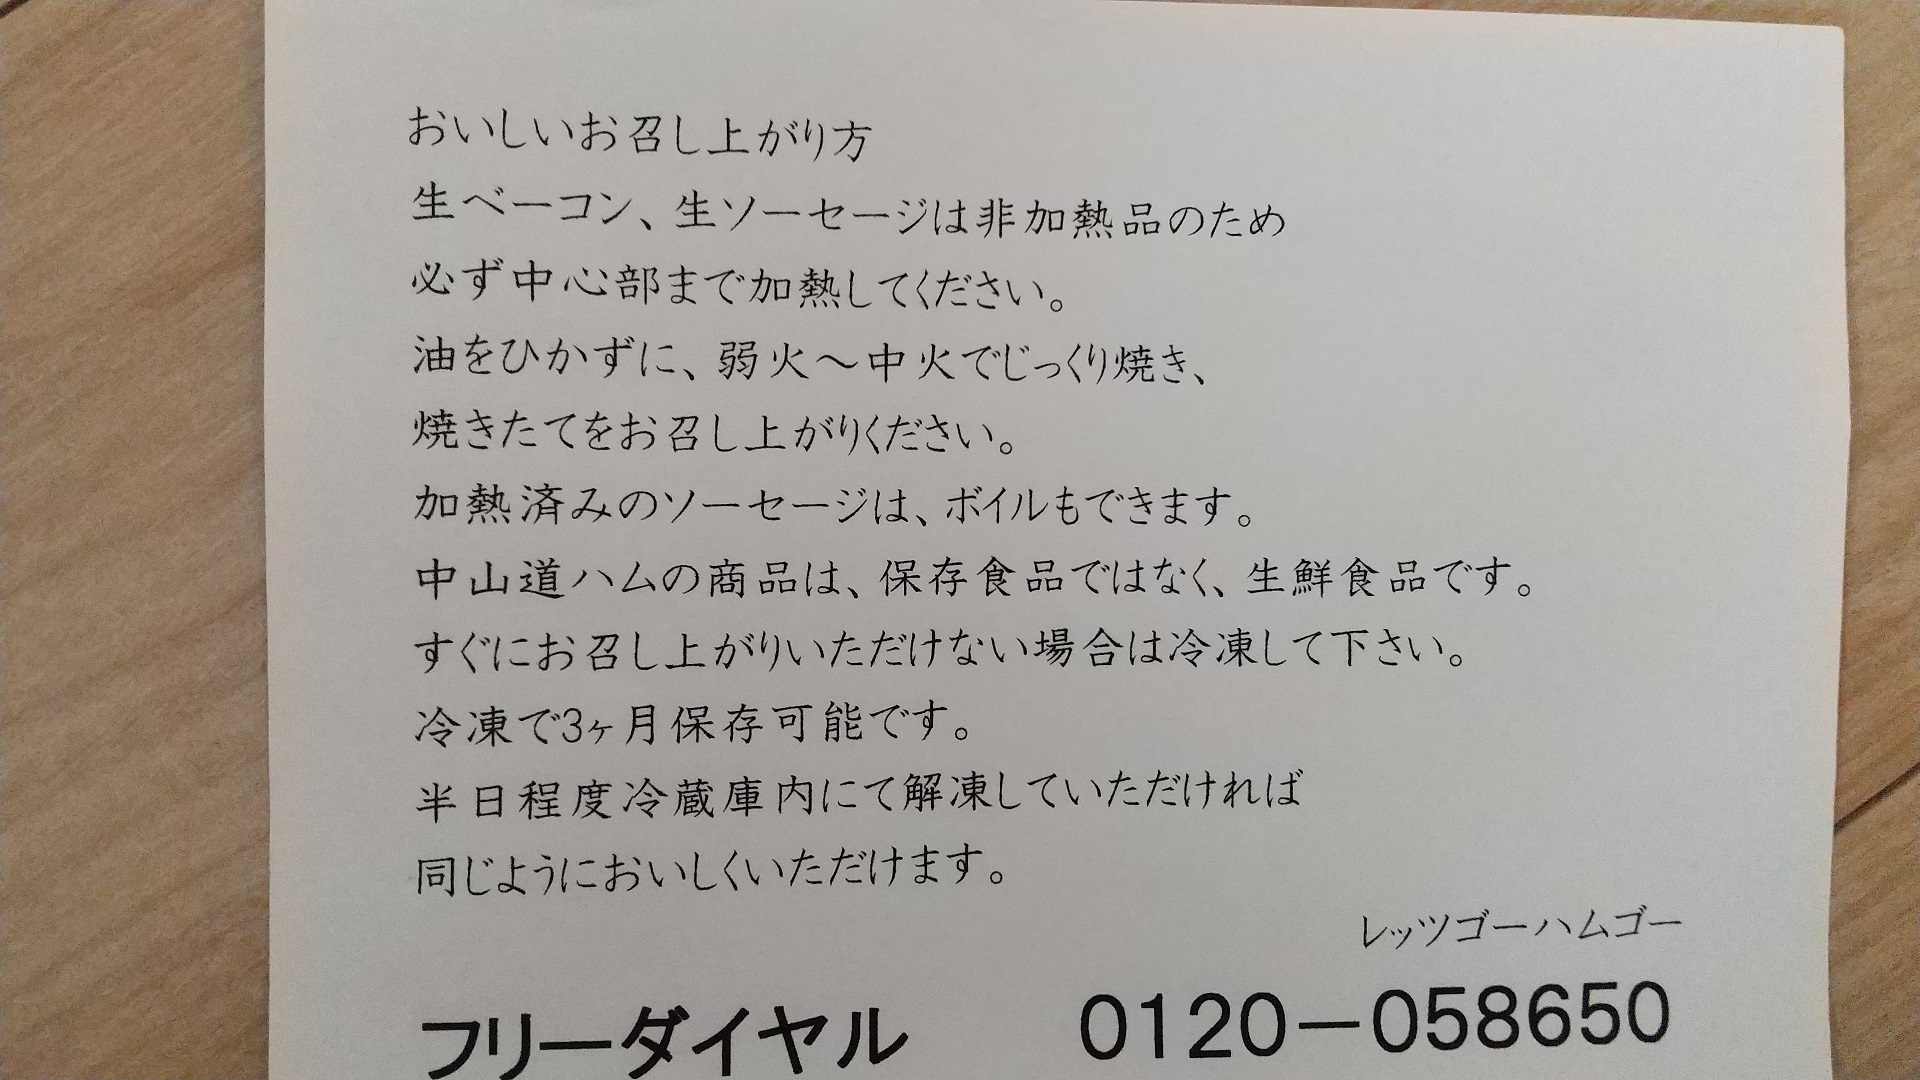 おいしいお召し上がり方
生ベーコン、生ソーセージは非加熱品のため
必ず中心部まで加熱してください。
油をひかずに、弱火〜中火でじっくり焼き、
焼きたてをお召し上がりください。
加熱済みのソーセージは、ボイルもできます。
中山道ハムの商品は、保存食品ではなく、生鮮食品です。
すぐにお召し上がりいただけない場合は冷凍して下さい。
冷凍で3ヶ月保存可能です。
半日程度冷蔵庫内にて解凍していただければ
同じようにおいしくいただけます。
レッツゴーハムゴー
フリーダイヤル 0120-058650